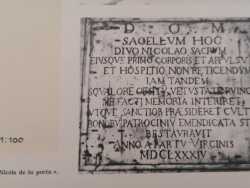 D O M
SACELLUM HOC
DIVO NICOLAO SACRUM
EIUSQUE PRIMO CORPORIS ET APPULSU
ET HOSPITIO NON RETICENDU
IAM TANDEM
SQUALORE OBSITU VETUSTATE RVINO
NE FACTI MEMORIA INTERIRET
UTQUE SANCTIOR PRAESIDERET CULTUS
PATROCINIU EMENDICATA ST
RESTAVRAVIT
ANNO A PARTU VIRGINIS
MDCLXXXIV
1:100
Nicola de la porta ».